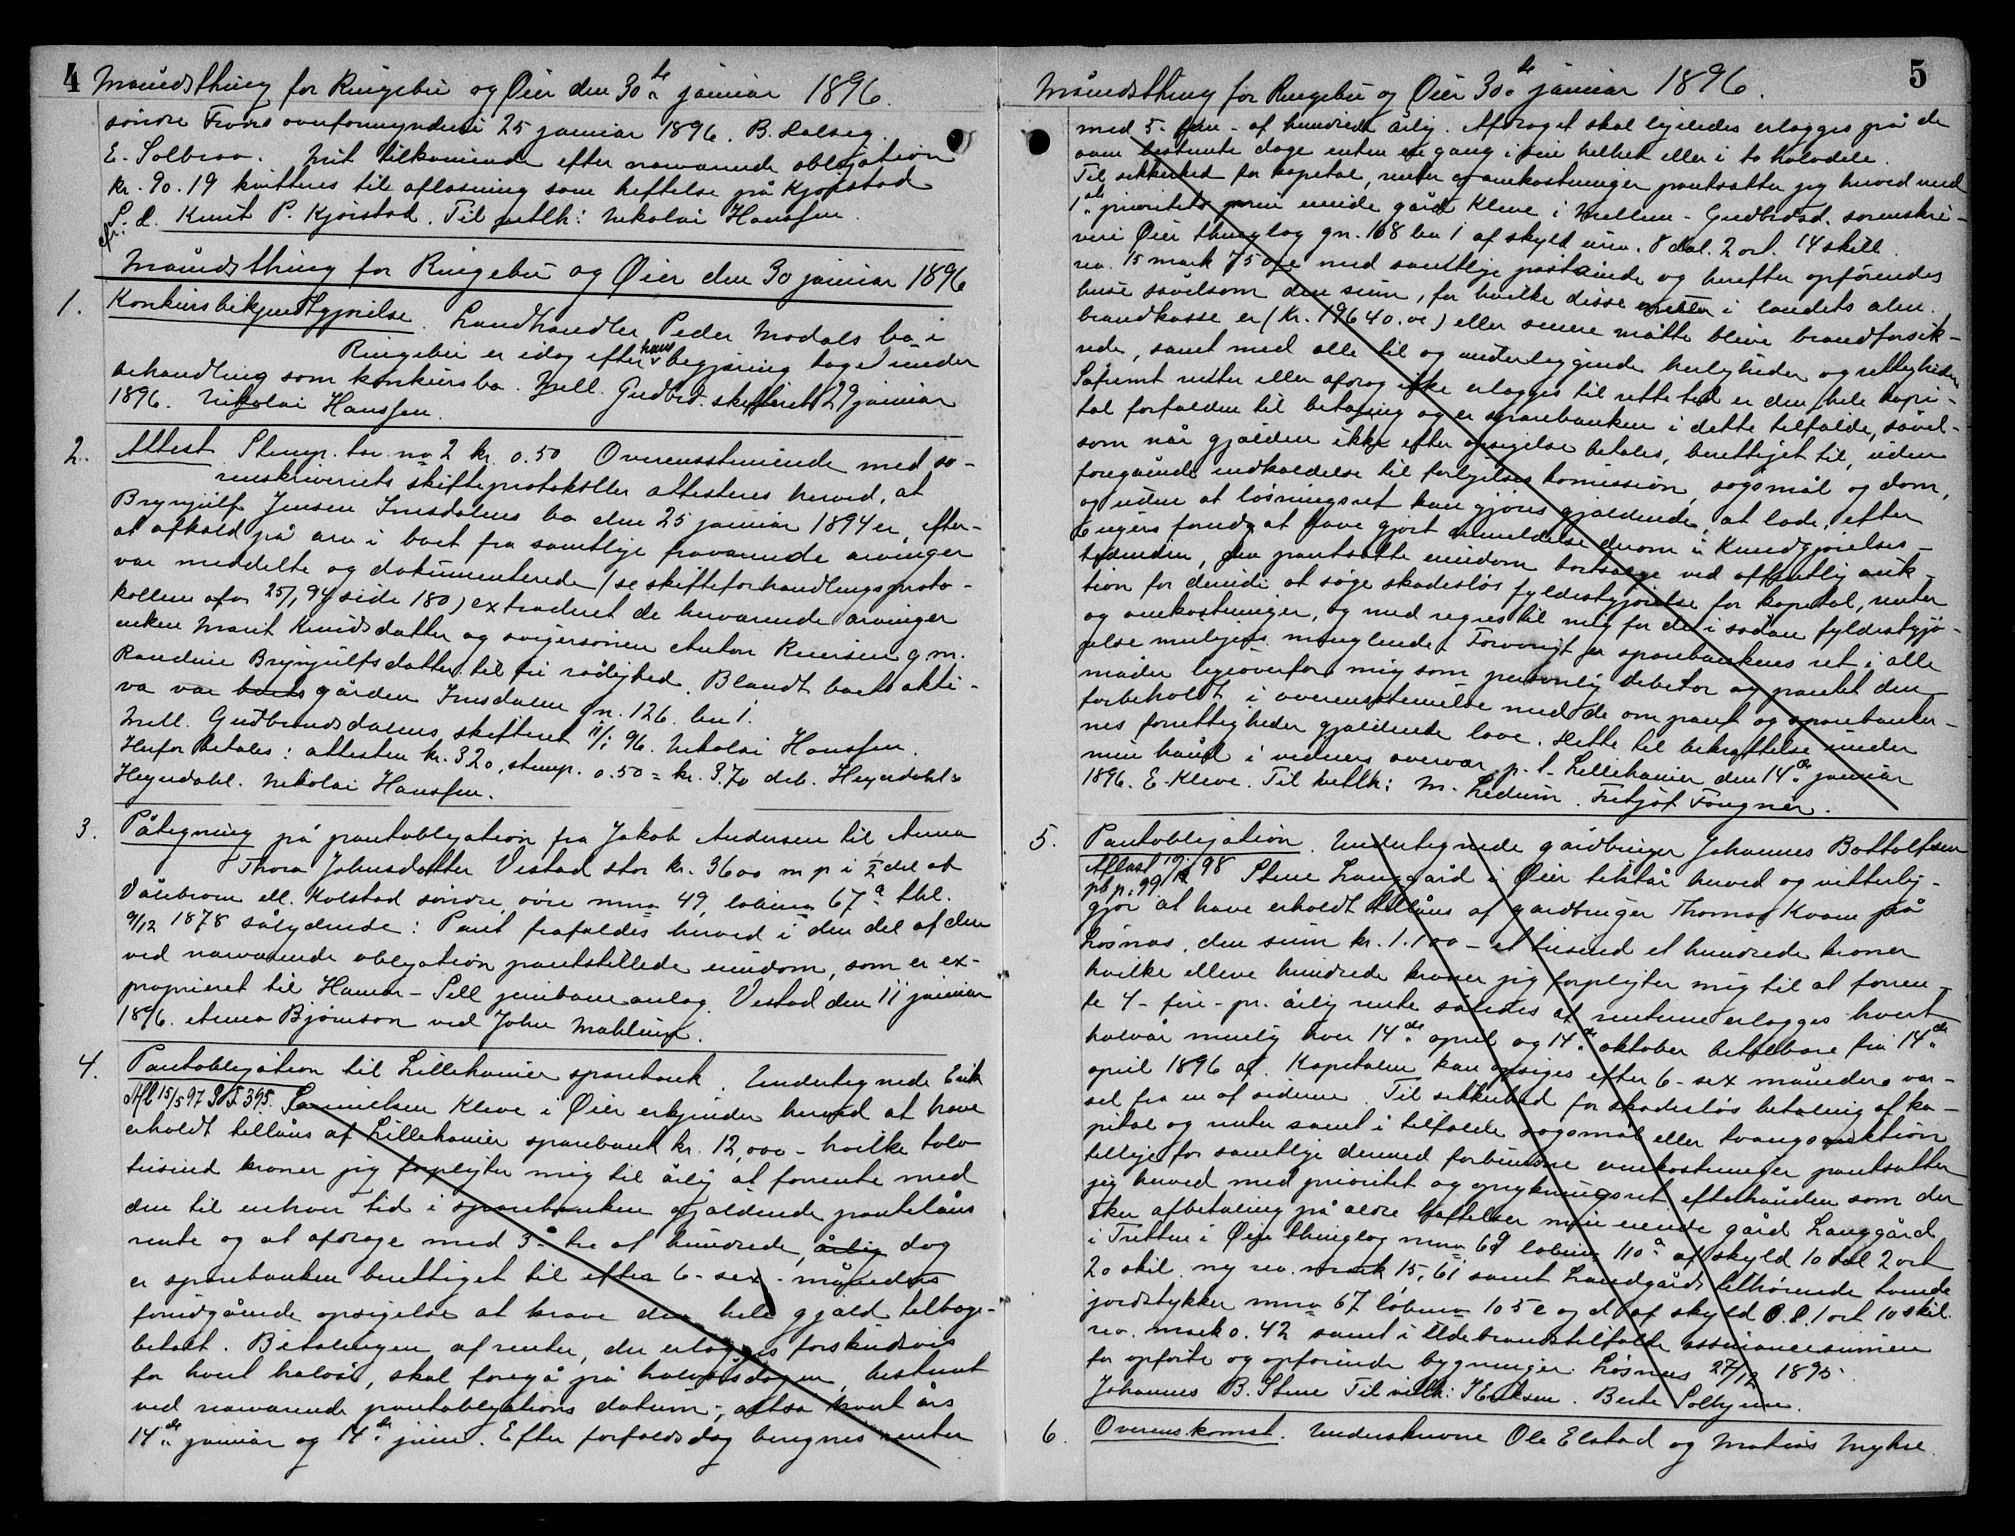 4 Månedsthing for Ringebu og Øier den 30te januar 1896.
søndre Frons overformynderi 25 januar 1896. B. Halseg.
E. Solbraa. Mit tilkommende efter nærværende obligation
kr. 90.19 kvitteres til aflæsning som heftelse på Kjørstad
S. d. Knut P. Kjørstad. Til vitlh: Nikolai Hanssen.
Månedsthing for Ringebu og Øier den 30 januar 1896
1. Konkursbekjendtgjørelse. Landhandler Peder Modals bo i
Ringebu er idag efter hans begjæring taget under
behandling som konkursbo. Mell. Gudbrd. skifteret 29 januar
1896. Nikolai Hanssen.
2. Attest Stemp. tar. no 2 kr. 0.50 Overensstemmende med so-
renskriveriets skifteprotokoller attesteres herved, at
Brynjulf Jensen Imsdalens bo den 25 januar 1894 er, efter-
at afkald på arv i boet fra samtlige fraværende arvinger
var meddelte og dokumenterede (se skifteforhandlingsproto-
kollen for 25/1 94 side 180) extraderet de herværende arvinger
enken Marit Knudsdatter og svigersønnen Anton Reiersen g.m.
Randine Brynjulfsdatter til fri rådighed. Blandt boets akti-
va var boets gården Imsdalen gn. 126. bn 1.
Mell. Gudbrandsdalens skifteret 11/1 96. Nikolai Hanssen.
Herfor betales: attesten kr. 3.20, stemp. 0.50 = kr. 3.70 deb. Heyerdahl
Heyerdahl. Nikolai Hanssen.
3. Påtegning på pantobligation fra Jakob Andersen til Anna
Thora Johnsdatter Vestad stor kr. 3600 m p i 1/2 del af
Vålebroen ell. Kolstad søndre, øvre mno 49, løbeno 67a thl.
9/12 1878 sålydende: Pant frafaldes herved i den del af den
ved nærværende obligation pantstillede eiendom, som er ex-
proprieret til Hamar-Sell jernbaneanlæg. Vestad den 11 januar
1896. Anna Bjørnson ved John Mahlum.
4. Pantobligation til Lillehammer sparebank. Undertegnede Erik
Afl 15/5 97 P.b. I 395. Samuelsen Kleve i Øier erkjender herved at have
erholdt tillåns af Lillehammer sparebank kr. 12,000 - hvilke tolv
tusind kroner jeg forpligter mig til årlig at forrente med
den til enhver tid i sparebanken gjældende pantelåns
rente og at afdrage med 3 - tre af hundrede, årlig dog
er sparebanken berettiget til efter 6 - sex - måneders
forudgående opsigelse at kræve den hele gjæld tilbage-
betalt. Betalingen af renter, der erlægges forskudsvis
for hvert halvår, skal foregå på halvårsdagen, bestemt
ved nærværende pantobligations datum, altså hvert års
14de januar og 14de juni. Efter forfaldsdag beregnes renter
Månedsthing for Ringebu og Øier 30te januar 1896. 5
med 5 - fem - af hundrede årlig. Afdraget skal ligeledes erlægges på de
oven bestemte dage enten en gang i sin helhet eller i to halvdele.
Til sikkerhed for kapital, renter og omkostninger pantsætter jeg herved med
1ste prioritets min eiende gård Kleve i Mellem-Gudbrdsd. sorenskri-
veri Øier thinglag gn. 168 bn 1 af skyld uren. 8 dal. 2 ort. 14 skill.
rev. 15 mark 75 øre med samtlige påstående og herefter opførendes
huse såvelsom den sum, for hvilke disse i landets alm.
brandkasse er (kr. 19640.00) eller senere måtte blive brandforsik-
rede, samt med alle til og underliggende herligheder og rettigheder.
Såfremt renter eller afdrag ikke erlægges til rette tid er den hele kapi-
tal forfalden til betaling og er sparebanken i dette tilfælde, såvel-
som når gjælden ikke efter opsigelse betales, berettiget til, uden
foregående indkaldelse til forligelseskomission, søgsmål og dom,
og uden at løsningsret kan gjøres gjældende, at lade, efter
6 ugers forud at have gjort anmeldelse derom i Kundgjørelses-
tidenden, den pantsatte eiendom bortsælge ved offentlig auk-
tion for derudi at søge skadesløs fyldestgjørelse for kapital, renter
og omkostninger, og med regres til mig for det i sådan fyldestgjø-
relse muligens manglende. Forøvrigt er sparebankens ret i alle
måder ligeoverfor mig som personlig debitor og pantet den
forbeholdt i overensstemmelse med de om pant og sparebanker-
nes forrettigheder gjældende love. Dette til bekræftelse under
min hånd i vidners overvær. p. t. Lillehammer den 14de januar
1896. E. Kleve. Til vitlh: M. Ledum. Fritjof Fougner.
5. Pantobligation. Undertegnede gårdbruger Johannes Bottolfsen
Aflæst 19/12 98 pb p. 99 Stene Langgård i Øier tilstår herved og vitterlig-
gjør at have erholdt tillåns af gårdbruger Thomas Kvam på
Losnæs, den sum kr. 1.100 - et tusind et hundrede kroner
hvilke elleve hundrede kroner jeg forpligter mig til at forren-
te 4 - fire - pr. årlig rente således at renterne erlægges hvert
halvår nemlig hver 14de april og 14de oktober betalbare fra 14de
april 1896 af. Kapitalen kan opsiges efter 6 - sex måneders var-
sel fra en af siderne. Til sikkerhed for skadesløs betaling af ka-
pital og renter samt i tilfælde søgsmål eller tvangsauktion
tillige for samtlige dermed forbundne omkostninger pantsætter
jeg herved med prioritet og oprykningsret efterhånden som der
sker afbetaling på ældre hæftelser min eiende gård Langgård
i Tretten i Øier thinglag mno 69 løbeno 110a af skyld 10 dal 2 ort
20 skil. ny rev. mark 15,61 samt Landgårds tilhørende tvende
jordstykker mno 67 løbeno 105 c og d af skyld 0.d. 1 ort 10 skil.
rev. mark 0.42 samt i ildebrandstilfælde assurancesummen
for opførte og opførende bygninger. Losnæs 27/12 1895.
Johannes B. Stene Til vitlh: Eriksen. Berte Solhjem.
6. Overenskomst. Underskrevne Ole Elstad og Mathias Myhre